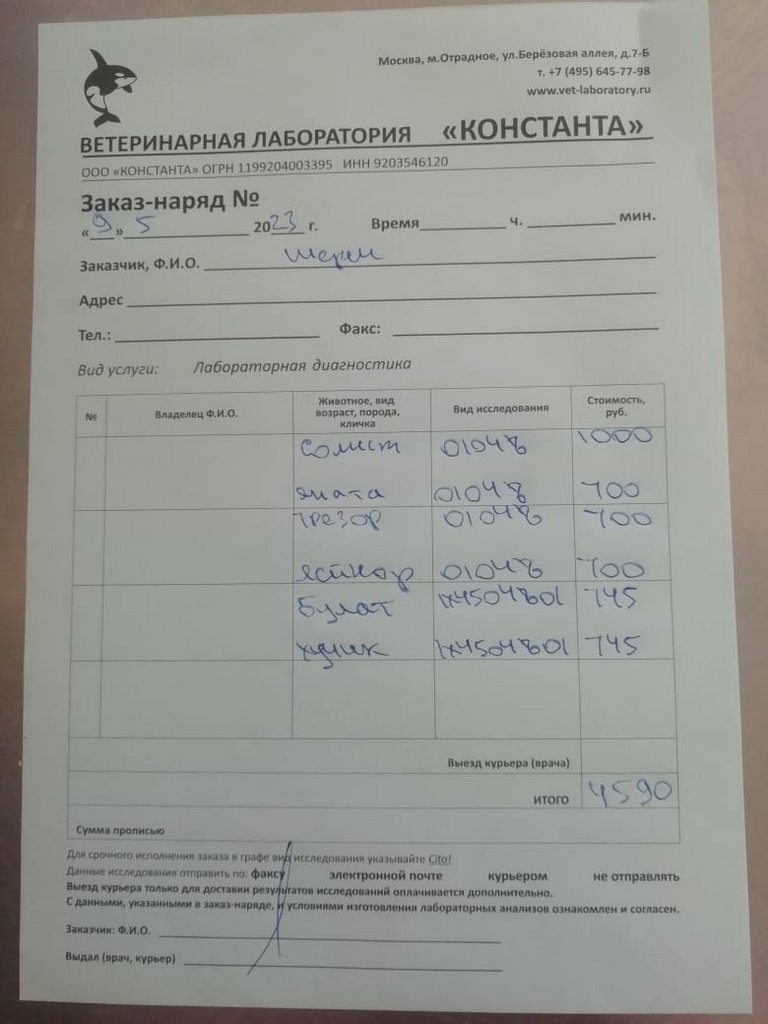 Москва, м.Отрадное, ул.Берёзовая аллея, д.7-Б
т. +7 (495) 645-77-98
www.vet-laboratory.ru
ВЕТЕРИНАРНАЯ ЛАБОРАТОРИЯ «КОНСТАНТА»
ООО «КОНСТАНТА» ОГРН 1199204003395 ИНН 9203546120
Заказ-наряд №
«9» 5 2023 г. Время ч. мин.
Заказчик, Ф.И.О.
Адрес
Тел.: Факс:
Вид услуги: Лабораторная диагностика
№ Владелец Ф.И.О. Животное, вид возраст, порода, кличка Вид исследования Стоимость, руб.
Солист 01048 1000
01048 700
Трезор 01048 700
01048 700
Булат 1x4504801 745
1x4504801 745
Выезд курьера (врача)
ИТОГО 4590
Сумма прописью
Для срочного исполнения заказа в графе вид исследования указывайте Cito!
Данные исследования отправить по: факсу электронной почте курьером не отправлять
Выезд курьера только для доставки результатов исследований оплачивается дополнительно.
С данными, указанными в заказ-наряде, и условиями изготовления лабораторных анализов ознакомлен и согласен.
Заказчик: Ф.И.О.
Выдал (врач, курьер)